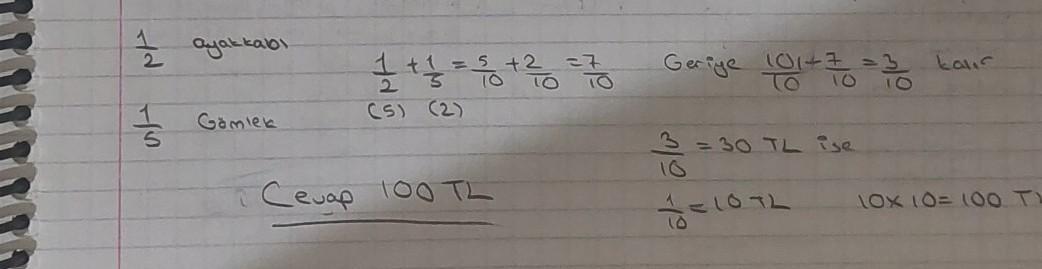 1/2 ayakkabı
1/2 + 1/5 = 5/10 + 2/10 = 7/10
(5) (2)
Geriye 10/10 + 7/10 = 3/10 kalır
1/5 Gömlek
3/10 = 30 TL ise
Cevap 100 TL
1/10 = 10 TL 10x10=100 T